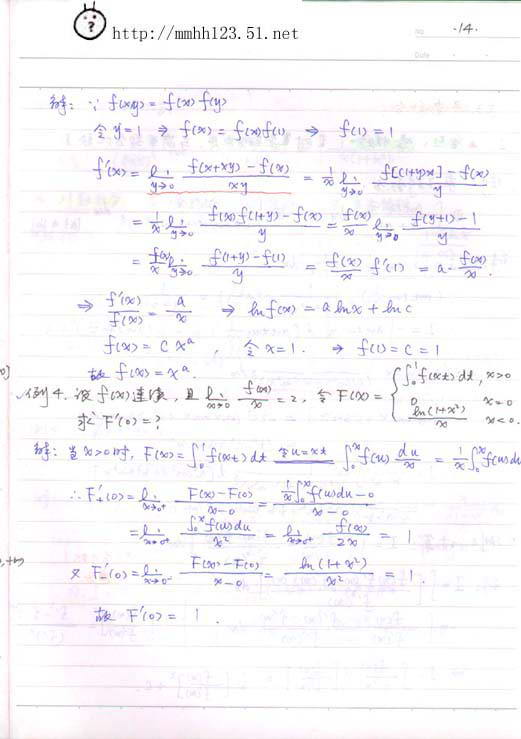 http://mmhh123.51.net
No. ·14.
Date
解: ∵ f(xy) = f(x) f(y)
令 y=1 ⇒ f(x) = f(x)f(1) ⇒ f(1) = 1
f'(x) = li_{y→0} (f(x+xy) - f(x))/(xy) = 1/x li_{y→0} (f[(1+y)x] - f(x))/y
= 1/x li_{y→0} (f(x)f(1+y) - f(x))/y = f(x)/x li_{y→0} (f(y+1) - 1)/y
= f(x)/x li_{y→0} (f(1+y) - f(1))/y = f(x)/x f'(1) = a· f(x)/x .
⇒ f'(x)/f(x) = a/x ⇒ ln f(x) = a ln x + ln c
f(x) = c x^a , 令 x=1. ⇒ f(1) = c = 1
故 f(x) = x^a.
例4. 设 f(x) 连续, 且 li_{x→0} f(x)/x = 2, 令 F(x) = { ∫_0^1 f(xt) dt, x>0
0 x=0
ln(1+x²)/x x<0.
求 F'(0) = ?
解: 当 x>0 时, F(x) = ∫_0^1 f(xt) dt 令u=xt ∫_0^x f(u) du/x = 1/x ∫_0^x f(u) du
∴ F'_+(0) = li_{x→0+} (F(x) - F(0))/(x-0) = (1/x ∫_0^x f(u)du - 0)/(x-0)
= li_{x→0+} ∫_0^x f(u)du / x² = li_{x→0+} f(x)/2x = 1
又 F'_-(0) = li_{x→0-} (F(x) - F(0))/(x-0) = ln(1+x²)/x² = 1.
故 F'(0) = 1 .